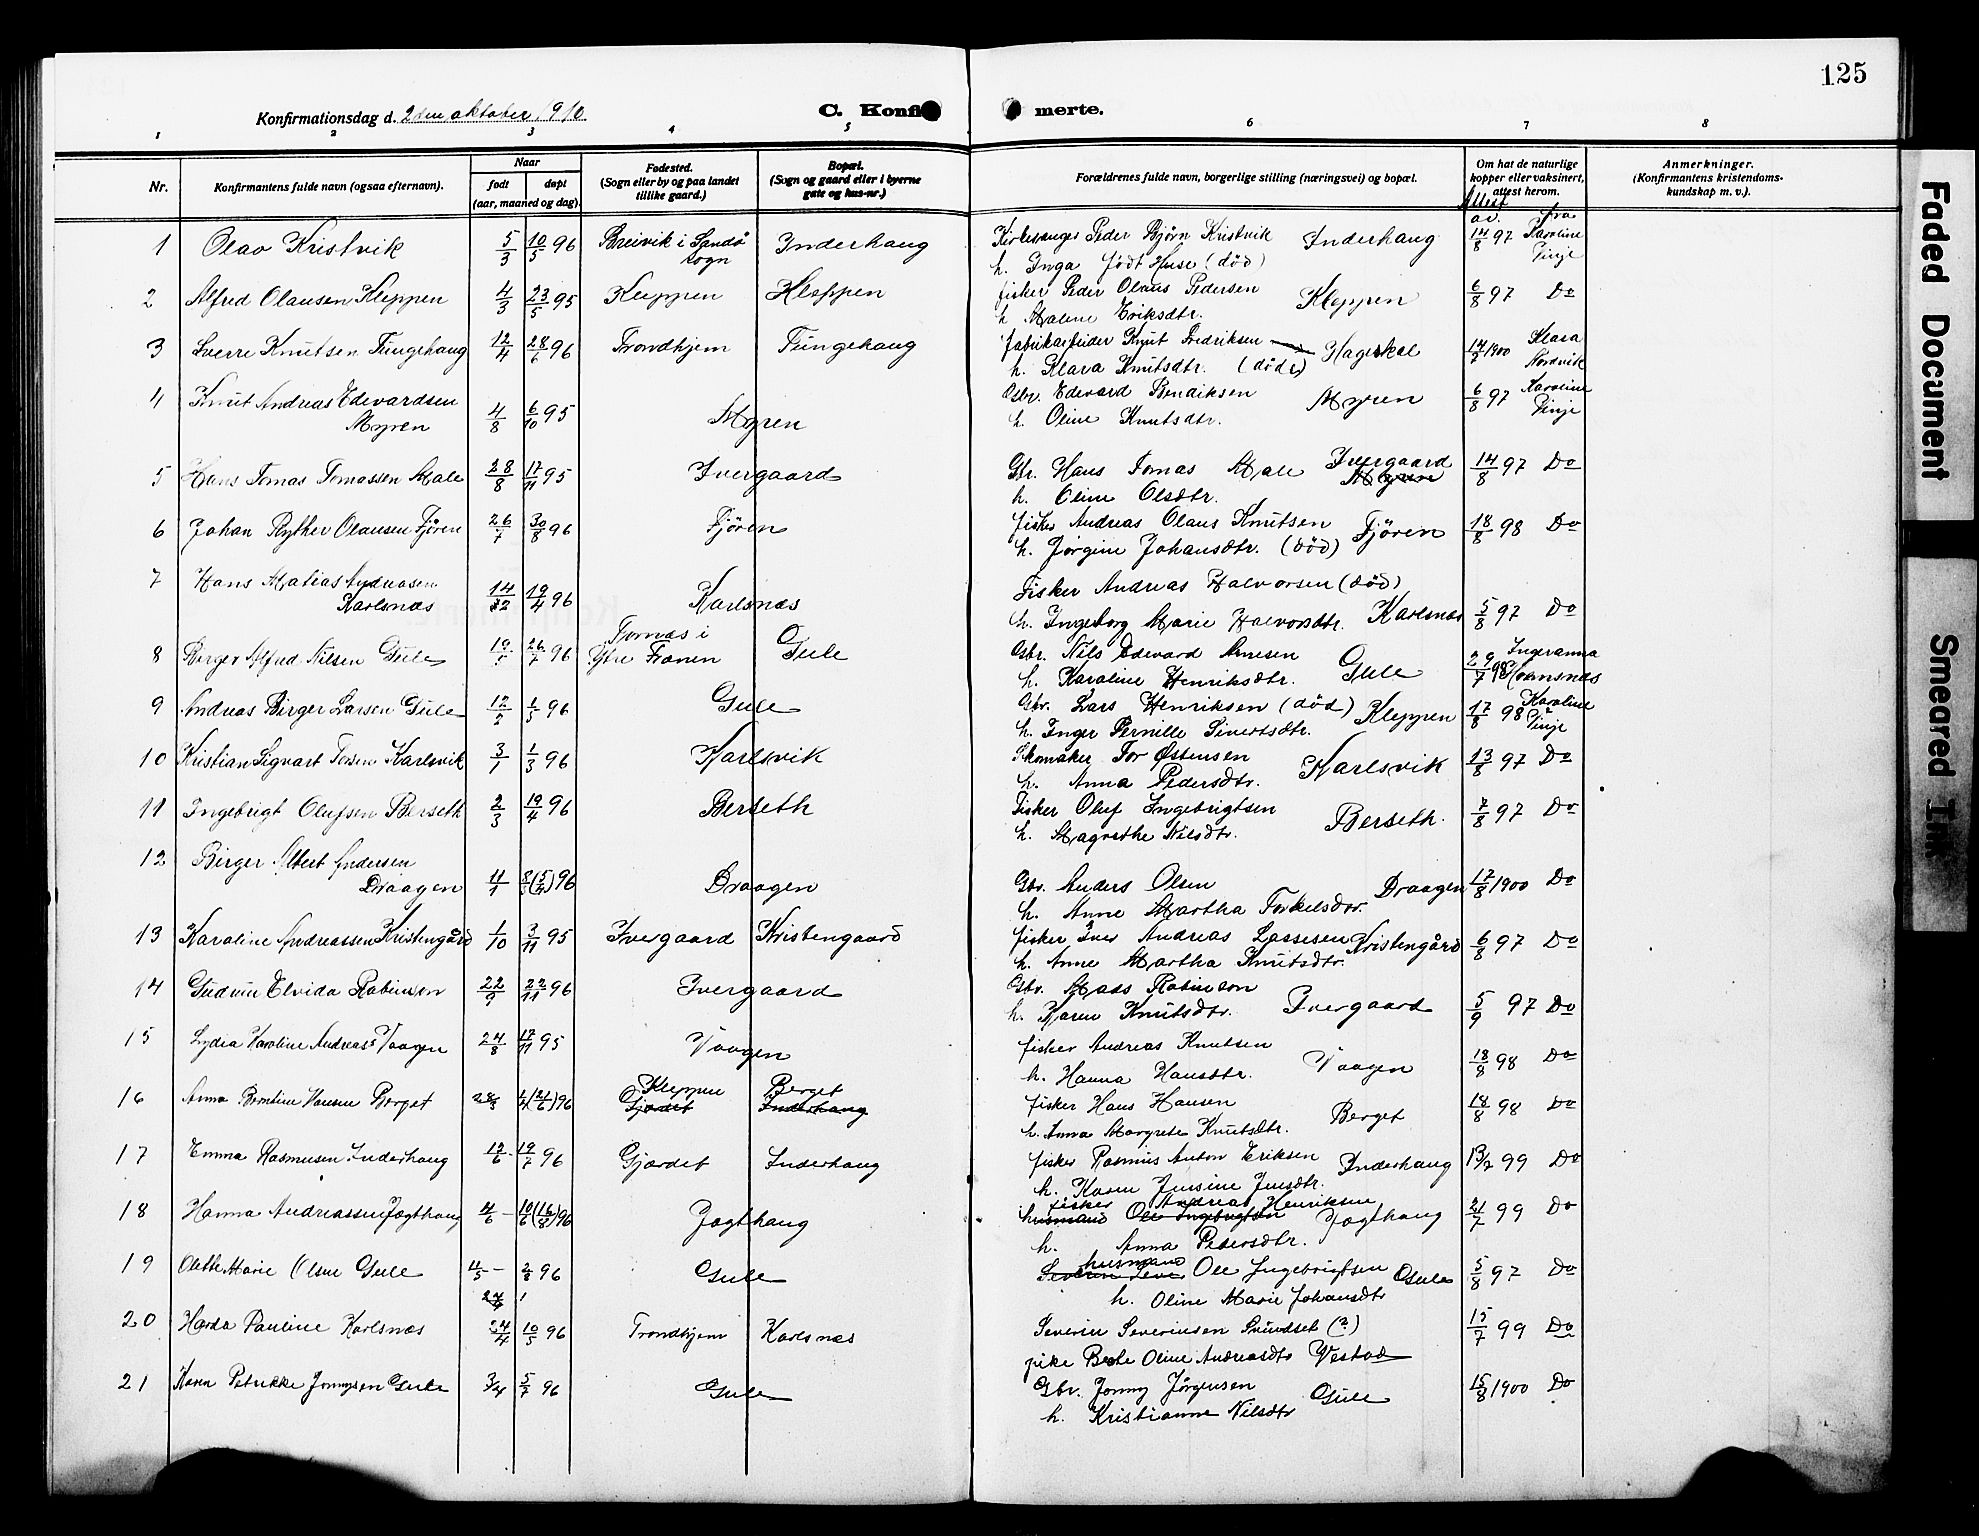 125
Konfirmationsdag d. 2den oktober 1910
C. Konfi merte.
1 2 3 4 5 6 7 8
Nr.
Konfirmantens fulde navn (ogsaa efternavn).
Naar
født døpt
(aar, maaned og dag).
Fødested.
(Sogn eller by og paa landet
tillike gaard.)
Bopæl.
(Sogn og gaard eller i byerne
gate og hus-nr.)
Forældrenes fulde navn, borgerlige stilling (næringsvei) og bopæl.
Om hat de naturlige
kopper eller vaksinert,
attest herom.
Anmerkninger.
(Konfirmantens kristendoms-
kundskap m. v.).
Attest
av. fra
1 Olav Kristvik 5/3 10/5 96 Breivik i Sandø sogn Inderhaug Kirkesanger Peder Bjørn Kristvik Inderhaug 14/8 97 Karoline Vinje
h. Inga født Huse (død)
2 Alfred Olausen Kleppen 4/3 23/5 95 Kleppen Kleppen fisker Peder Olaus Pedersen Kleppen 6/8 97 Do
h. Malene Eriksdtr.
3 Sverre Knutsen Tungehaug 12/4 28/6 96 Trondhjem Tungehaug fabrikarbeider Knut Fredriksen Hageskal 14/7 1900 Klara Nordvik
h. Klara Knutsdtr. (døde)
4 Knut Andreas Edevardsen
Myren 4/8 6/10 95 Myren Gbr. Edevard Bendiksen Myren 6/8 97 Karoline Vinje
h. Oline Knutsdtr.
5 Hans Tomas Tomassen Male 28/8 17/11 95 Ivergaard Gbr. Hans Tomas Male Ivergaard Myren 14/8 97 Do
h. Oline Olsdtr.
6 Johan Ryther Olausen Fjøren 26/7 30/8 96 Fjøren fisker Andreas Olaus Knutsen Fjøren 18/8 98 Do
h. Jørgine Johansdtr. (død)
7 Hans Matias Andreasen
Karlsnæs 14/2 19/4 96 Karlsnæs Fisker Andreas Halvorsen (død)
h. Ingeborg Marie Halvorsdtr. Karlsnæs 5/8 97 Do
8 Birger Alfred Nilsen Gule 26/7 96 Tornæs i Ytre Frænen Gule Gbr. Nils Edevard Arnesen Gule 29/7 98 Ingeranna
h. Karoline Henriksdtr.
9 Andreas Birger Larsen Gule 12/2 1/5 96 Gule Gbr. Lars Henriksen (død) Kleppen 17/8 98 Karoline Vinje
h. Inger Pernille Sivertsdtr.
10 Kristian Sigvart Torsen Karlsvik 3/1 1/3 96 Karlsvik Skomaker Tor Østensen Karlsvik 13/8 97 Do
h. Anna Pedersdtr.
11 Ingebrigt Olufsen Berseth 2/3 19/4 96 Berseth Fisker Oluf Ingebrigtsen Berseth. 7/8 97 Do
h. Magrethe Nilsdtr.
12 Birger Albert Andersen
Draagen 11/1 96 Draagen Gbr. Anders Olsen Draagen 17/8 1900 Do
h. Anne Martha Torkelsdtr.
13 Karoline Andreassen Kristengård 1/10 3/11 95 Ivergaard Kristengaard fisker Iver Andreas Lassesen Kristengård 6/8 97 Do
h. Anne Martha Knutsdtr.
14 Gudrun Elvida Robinson 22/9 22/11 96 Ivergaard Gbr. Mads Robinson Ivergaard 5/9 97 Do
h. Karen Knutsdtr.
15 Lydia Karoline Andreass Vaagen 24/8 17/11 95 Vaagen fisker Andreas Knutsen Vaagen 18/8 98 Do
h. Hanna Hansdtr.
16 Anna Berntine Hansen Berget 28/3 96 Kleppen Gjærdet Berget Inderhaug fisker Hans Hansen Berget 18/8 98 Do
h. Anna Margrete Knutsdtr.
17 Emma Rasmusen Inderhaug 12/6 19/7 96 Gjærdet Inderhaug fisker Rasmus Anton Eriksen Inderhaug 13/7 99 Do
h. Karen Jensine Jensdtr.
18 Hanna Andreassen Jægthaug 4/6 96 Jægthaug fisker Andreas Henriksen
husmand Ole Ingebrigtsen Jægthaug 21/7 99 Do
h. Anna Pedersdtr.
19 Olette Marie Olsen Gule 4/5 2/8 96 Gule husmand
Ole Ingebrigtsen Gule 5/8 97 Do
h. Oline Marie Johansdtr
20 Harda Pauline Karlsnæs 24/4 10/5 96 Trondhjem Karlsnæs Severin Severinsen Sundset (?) 15/7 99 Do
pike Berte Oline Andreasdtr Vestad
21 Karen Petrikke Jonnysen Gule 3/4 5/7 96 Gule Gbr. Jonny Jørgensen Gule 15/8 1900 Do
h. Kristianne Nilsdtr
Faded Document
Smeared Ink